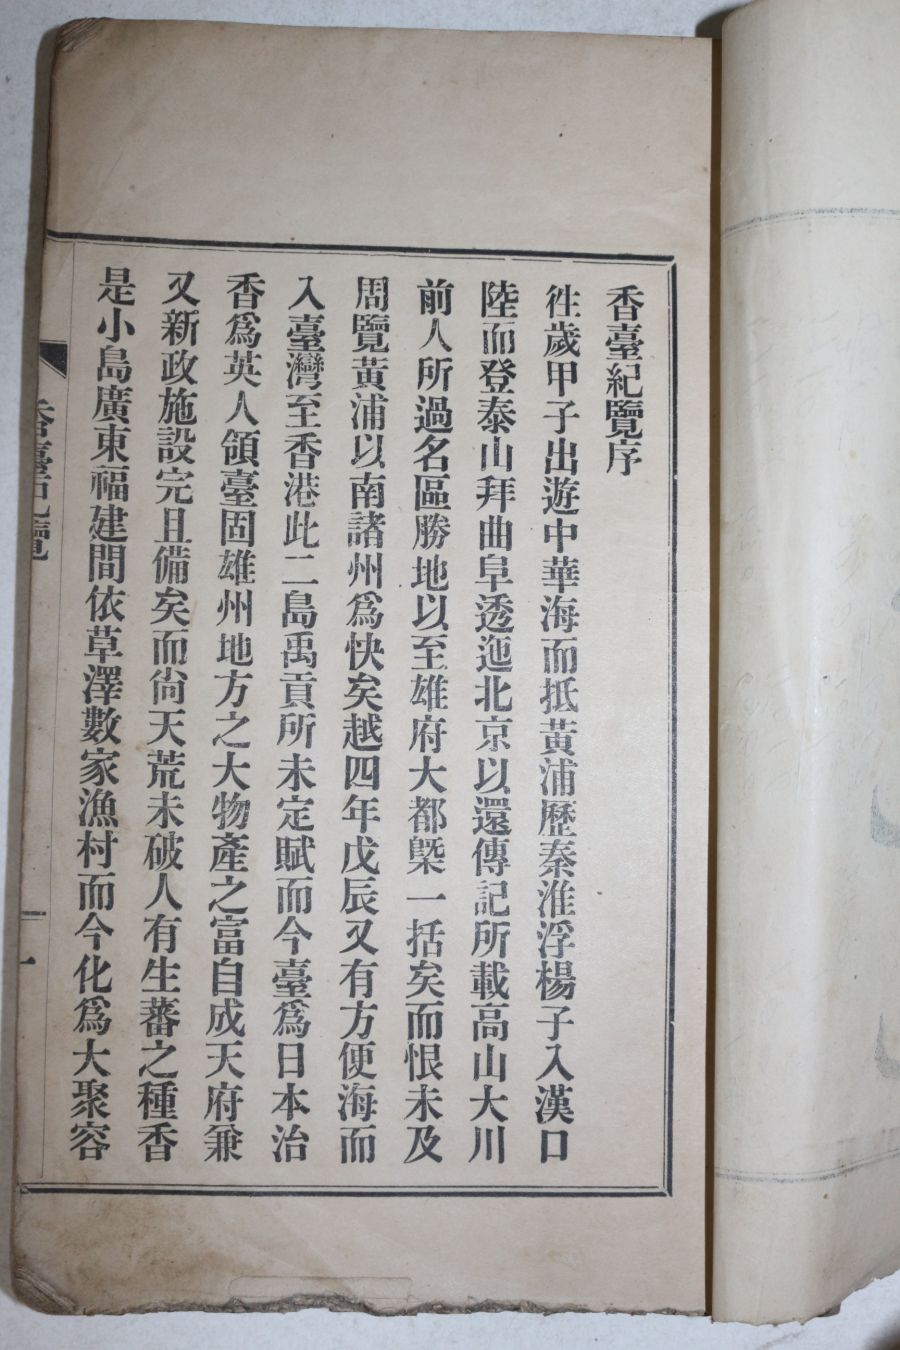 香臺紀覽序
往歲甲子出遊中華海而抵黃浦歷秦淮浮楊子入漢口
陸而登泰山拜曲阜透迤北京以還傳記所載高山大川
前人所過名區勝地以至雄府大都槩一括矣而恨未及
周覽黃浦以南諸州爲快矣越四年戊辰又有方便海而
入臺灣至香港此二島禹貢所未定賦而今臺爲日本治
香爲英人領臺固雄州地方之大物產之富自成天府兼
又新政施設完且備矣而尙天荒未破人有生蕃之種香
是小島廣東福建間依草澤數家漁村而今化爲大聚容
香臺紀覽
一